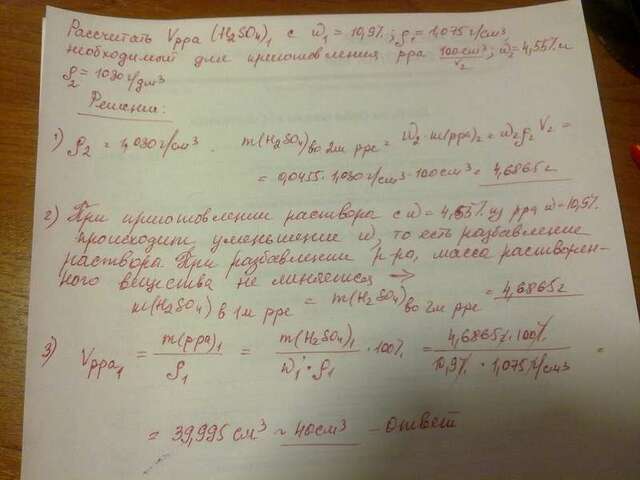 Рассчитать Vрра (H₂SO₄)₁ с ω₁ = 10,9%; ρ₁ = 1,075 г/см³
необходимый для приготовления рра 100 см³ V₂; ω₂ = 4,55% и
ρ₂ = 1030 г/дм³
Решение:
1) ρ₂ = 1,030 г/см³. m(H₂SO₄) во 2м рре = ω₂ · m(рра)₂ = ω₂ρ₂V₂ =
= 0,0455 · 1,030 г/см³ · 100 см³ = 4,6865 г
2) При приготовлении раствора с ω = 4,55% из рра ω = 10,9%
происходит уменьшение ω, то есть разбавление
раствора. При разбавлении р-ра, масса растворен-
ного вещества не меняется →
m(H₂SO₄) в 1м рре = m(H₂SO₄) во 2м рре = 4,6865 г
3) Vрра₁ = m(рра)₁ / ρ₁ = m(H₂SO₄)₁ / ω₁ · ρ₁ · 100% = 4,6865 г · 100% / 10,9% · 1,075 г/см³ =
= 39,995 см³ ≈ 40 см³ – ответ